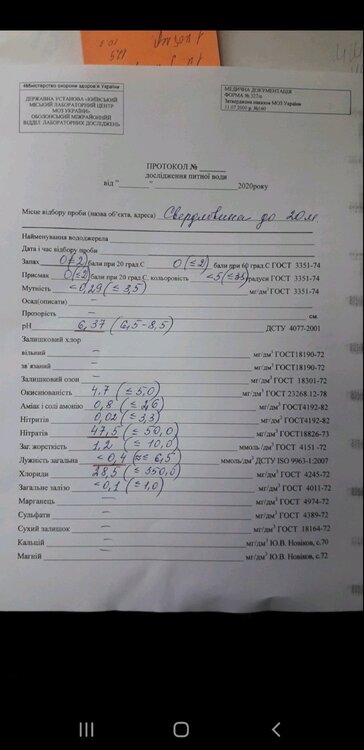 «Міністерство охорони здоров'я України
ДЕРЖАВНА УСТАНОВА «КИЇВСЬКИЙ
МІСЬКИЙ ЛАБОРАТОРНИЙ ЦЕНТР
МОЗ УКРАЇНИ»
ОБОЛОНСЬКИЙ МІЖРАЙОННИЙ
ВІДДІЛ ЛАБОРАТОРНИХ ДОСЛІДЖЕНЬ
МЕДИЧНА ДОКУМЕНТАЦІЯ
ФОРМА № 327/о
Затверджено наказом МОЗ України
11.07.2000 р. №160
ПРОТОКОЛ №
дослідження питної води
від " " 2020року
Місце відбору проби (назва об'єкта, адреса) Свердловина до 20м
Найменування вододжерела
Дата і час відбору проби
Запах 0(≤2) бали при 20 град.С 0(≤2) бали при 60 град.С ГОСТ 3351-74
Присмак 0(≤2) бали при 20 град.С, кольоровість <5(≤35) градуси ГОСТ 3351-74
Мутність <0,29(≤3,5) мг/дм³ ГОСТ 3351-74
Осад(описати) –
Прозорість – см.
рН 6,37 (6,5-8,5) ДСТУ 4077-2001
Залишковий хлор
вільний – мг/дм³ ГОСТ18190-72
зв'язаний – мг/дм³ ГОСТ18190-72
Залишковий озон – мг/дм³ ГОСТ 18301-72
Окиснюваність 4,7 (≤5,0) мг/дм³ ГОСТ 23268.12-78
Аміак і солі амонію 0,8 (≤2,6) мг/дм³ ГОСТ4192-82
Нітритів 0,02 (≤3,3) мг/дм³ ГОСТ4192-82
Нітратів 47,5 (≤50,0) мг/дм³ ГОСТ18826-73
Заг. жорсткість 1,2 (≤10,0) ммоль /дм³ ГОСТ 4151 -72
Лужність загальна <0,4 (≤6,5) ммоль/дм³ ДСТУ ISO 9963-1:2007
Хлориди 28,5 (≤350,0) мг/дм³ ГОСТ 4245-72
Загальне залізо <0,1 (≤1,0) мг/дм³ ГОСТ 4011-72
Марганець – мг/дм³ ГОСТ 4974-72
Сульфати – мг/дм³ ГОСТ 4389-72
Сухий залишок – мг/дм³ ГОСТ 18164-72
Кальцій – мг/дм³ Ю.В. Новіков, с.70
Магній – мг/дм³ Ю.В. Новіков, с.72